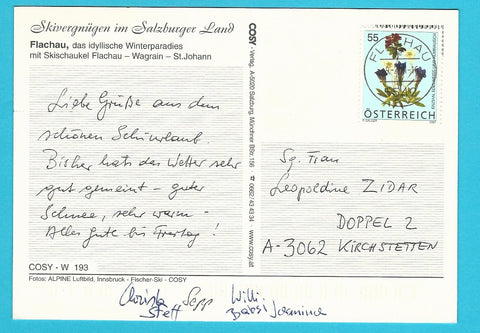 Skivergnügen im Salzburger Land
Flachau, das idyllische Winterparadies
mit Skischaukel Flachau – Wagrain – St.Johann
Liebe Grüße aus dem
schönen Schiurlaub.
Bisher hats das Wetter sehr
gut gemeint – guter
Schnee, sehr warm –
Alles Gute bis Freitag!
COSY - W 193
Fotos: ALPINE Luftbild, Innsbruck - Fischer-Ski - COSY
Christa Sepp Willi
Steff Babsi Jasmine
COSY - Verlag, A-5020 Salzburg, Münchner BStr. 156 ✆ 0662 43 43 34 www.cosy.at
55
FLACHAU
ÖSTERREICH
Sg. Frau
Leopoldine ZIDAR
DOPPEL 2
A-3062 KIRCHSTETTEN